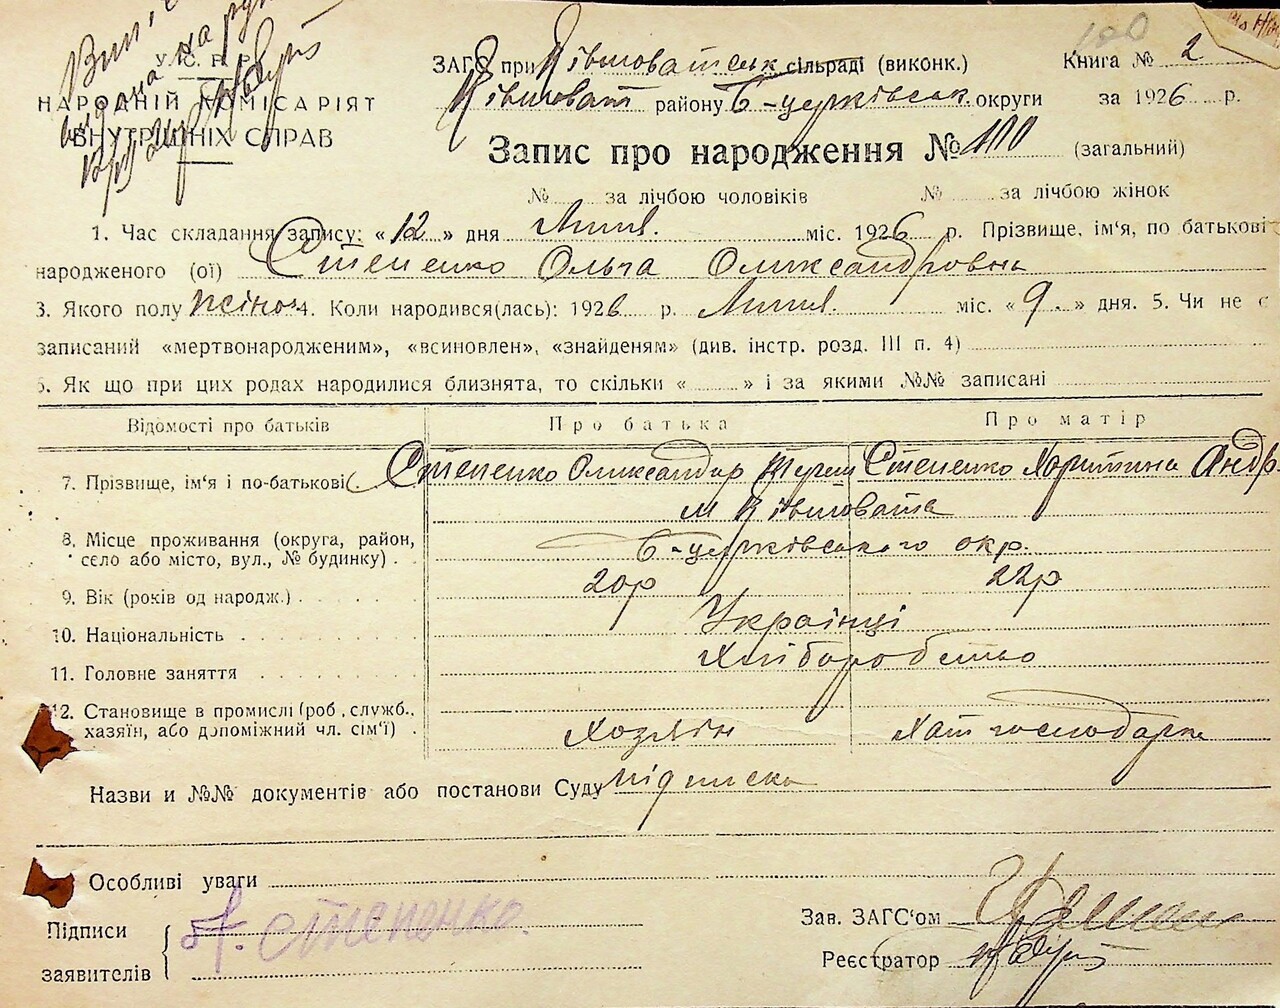 У. С. Р. Р.
НАРОДНІЙ КОМІСАРІЯТ
ВНУТРІШНІХ СПРАВ
ЗАГС при Ківшоватськ сільраді (виконк.)
Ківшоват району Б-церківськ округи
Книга № 2
за 1926 р.
Запис про народження № 100 (загальний)
№ за лічбою чоловіків № за лічбою жінок
1. Час складання запису: « 12 » дня Липня. міс. 1926 р. Прізвище, ім'я, по батькові
народженого (ої) Степенко Ольга Олександровна
3. Якого полу жіноч 4. Коли народився(лась): 1926 р. Липня. міс. « 9. » дня. 5. Чи не є
записаний «мертвонародженим», «всиновлен», «знайденям» (див. інстр. розд. III п. 4)
6. Як що при цих родах народилися близнята, то скільки « » і за якими №№ записані
Відомості про батьків Про батька Про матір
7. Прізвище, ім'я і по-батькові Степенко Олександар Степенко Харитина Андр.
м Ківшовата
8. Місце проживання (округа, район,
село або місто, вул., № будинку) . Б-церківського окр.
9. Вік (років од народж.) 20р 22р
10. Національність Українці
11. Головне заняття Хліборобство
12. Становище в промислі (роб., служб.,
хазяїн, або допоміжний чл. сім'ї) . Хозяін Хат господарка
Назви и №№ документів або постанови Суду підписка
Особливі уваги
Підписи
заявителів
А. Степенко.
Зав. ЗАГС'ом
Реєстратор